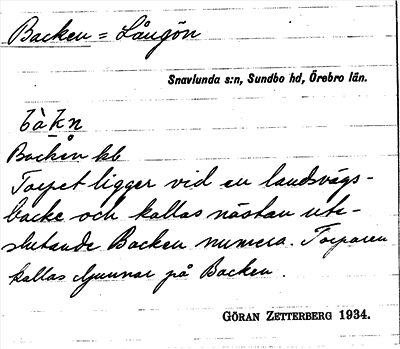 Backen = Långön
Snavlunda s:n, Sundbo hd, Örebro län.
bàkn
Backen kb
Torpet ligger vid en landsvägs-
backe och kallas nästan ute-
slutande Backen numera. Torparen
kallas Gunnar på Backen.
GÖRAN ZETTERBERG 1934.